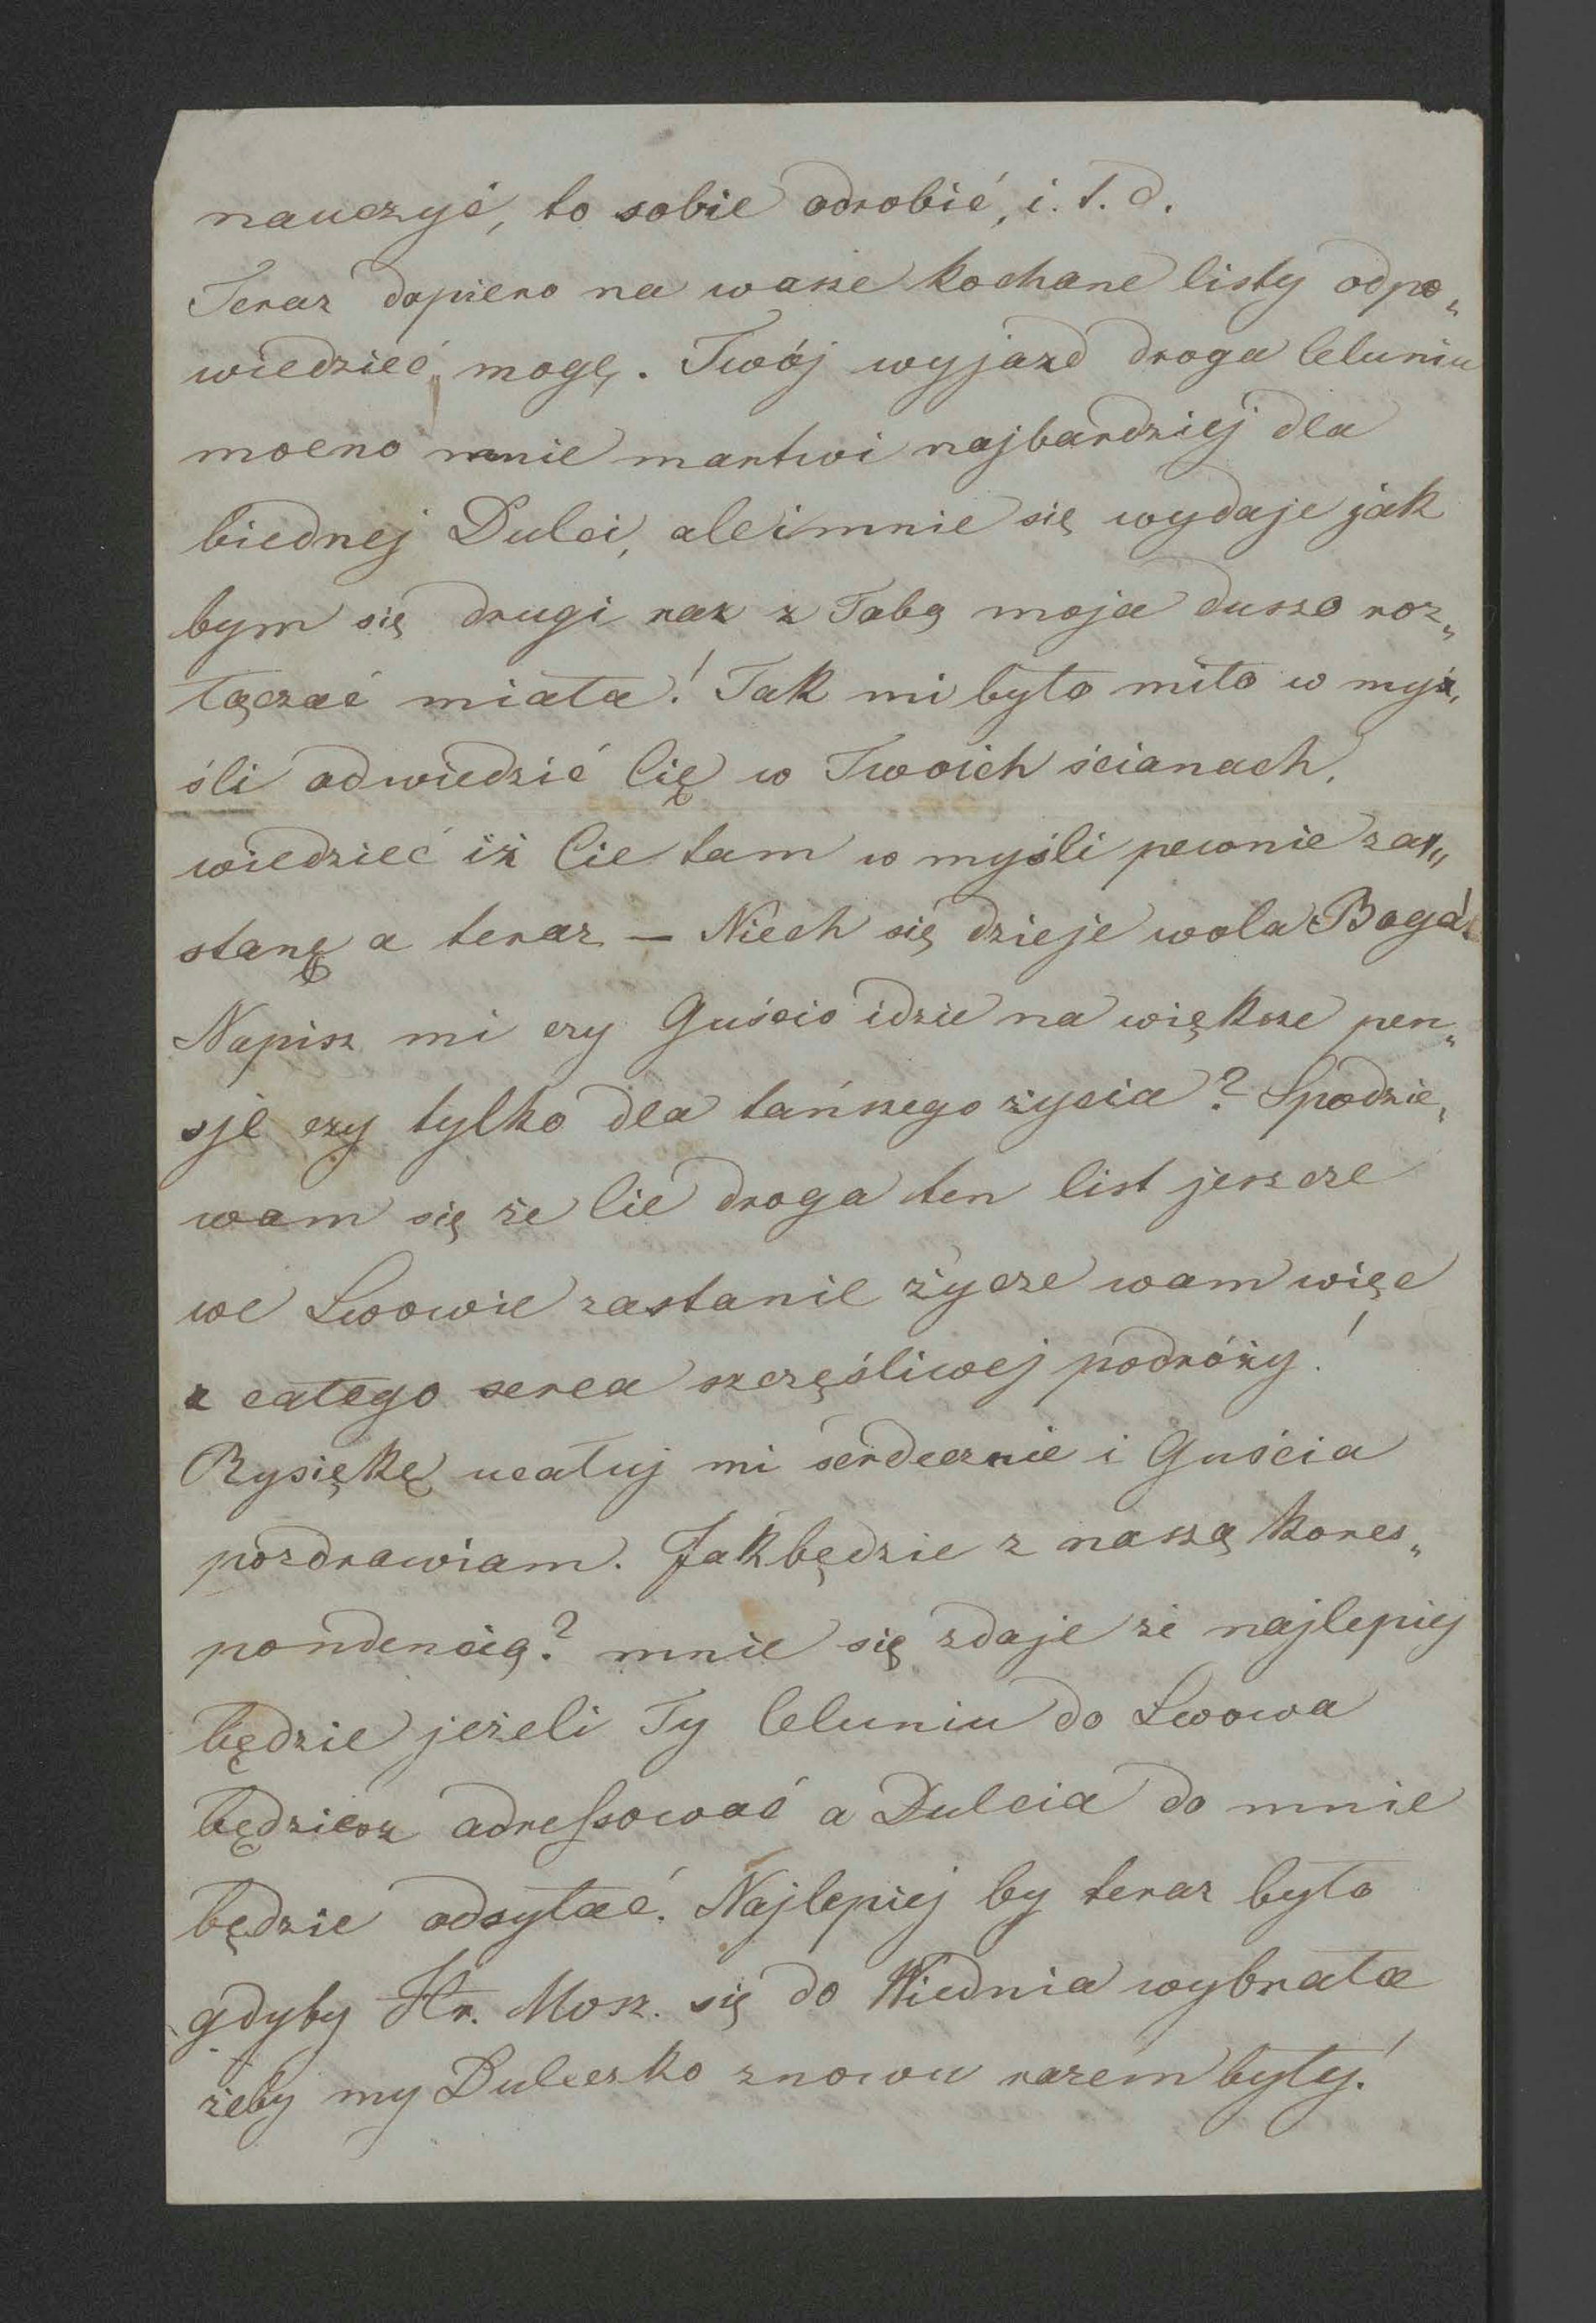 nauczyć, to sobie odrobić, i. t. d.
Teraz dopiero na wasze kochane listy odpo„
wiedzieć mogę. Twój wyjazd droga Celuniu
mocno mnie martwi najbardziej dla
biednej Dulci, ale i mnie się wydaje jak
bym się drugi raz z Tobą moja duszo roz„
łączać miała! Tak mi było miło w myś„
śli odwiedzić Cię w Twoich ścianach,
wiedzieć iż Cie tam w myśli pewnie zas„
stanę a teraz — Niech się dzieje wola Boga!
Napisz mi czy Guścio idzie na większe pen„
sje czy tylko dla tańszego życia? Spodzie„
wam się że Cie droga ten list jeszcze
we Lwowie zastanie życze wam więc
z całego serca szczęśliwej podróży!
Rysiękę ucałuj mi serdecznie i Guścia
pozdrawiam. Jak będzie z naszą kores„
pondencią? mnie się zdaje że najlepiej
będzie jeżeli Ty Celuniu do Lwowa
będziesz adressować a Dulcia do mnie
będzie odsyłać. Najlepiej by teraz było
gdyby Hr. Mosz. się do Wiednia wybrała
żeby my Dulceczko znowu razem były!